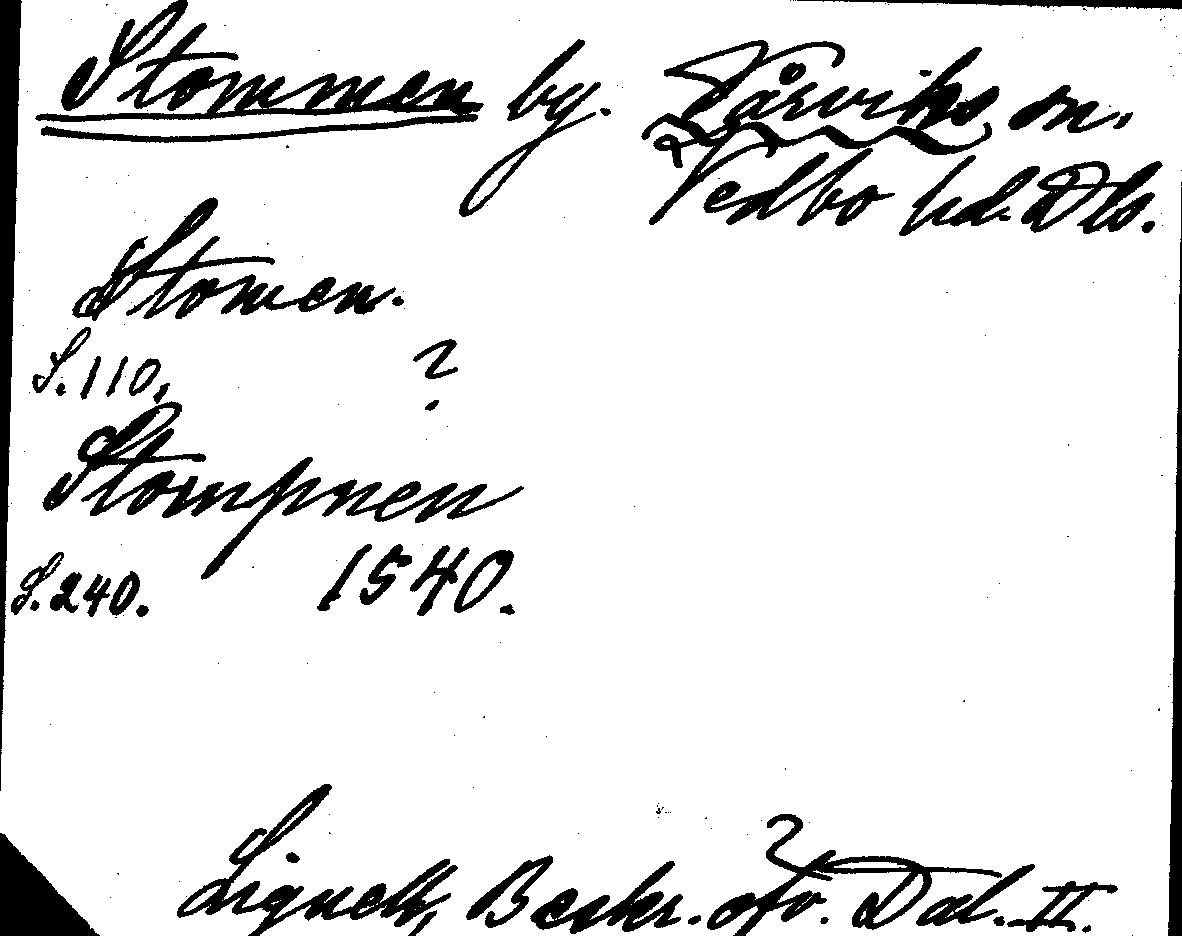 Stommen by. Tårviks sn.
Vedbo hd. Dls.
Stomen.
S. 110. ?
Stompnen
S. 240. 1540.
Lignell, Beskr. öfv. Dal. II.